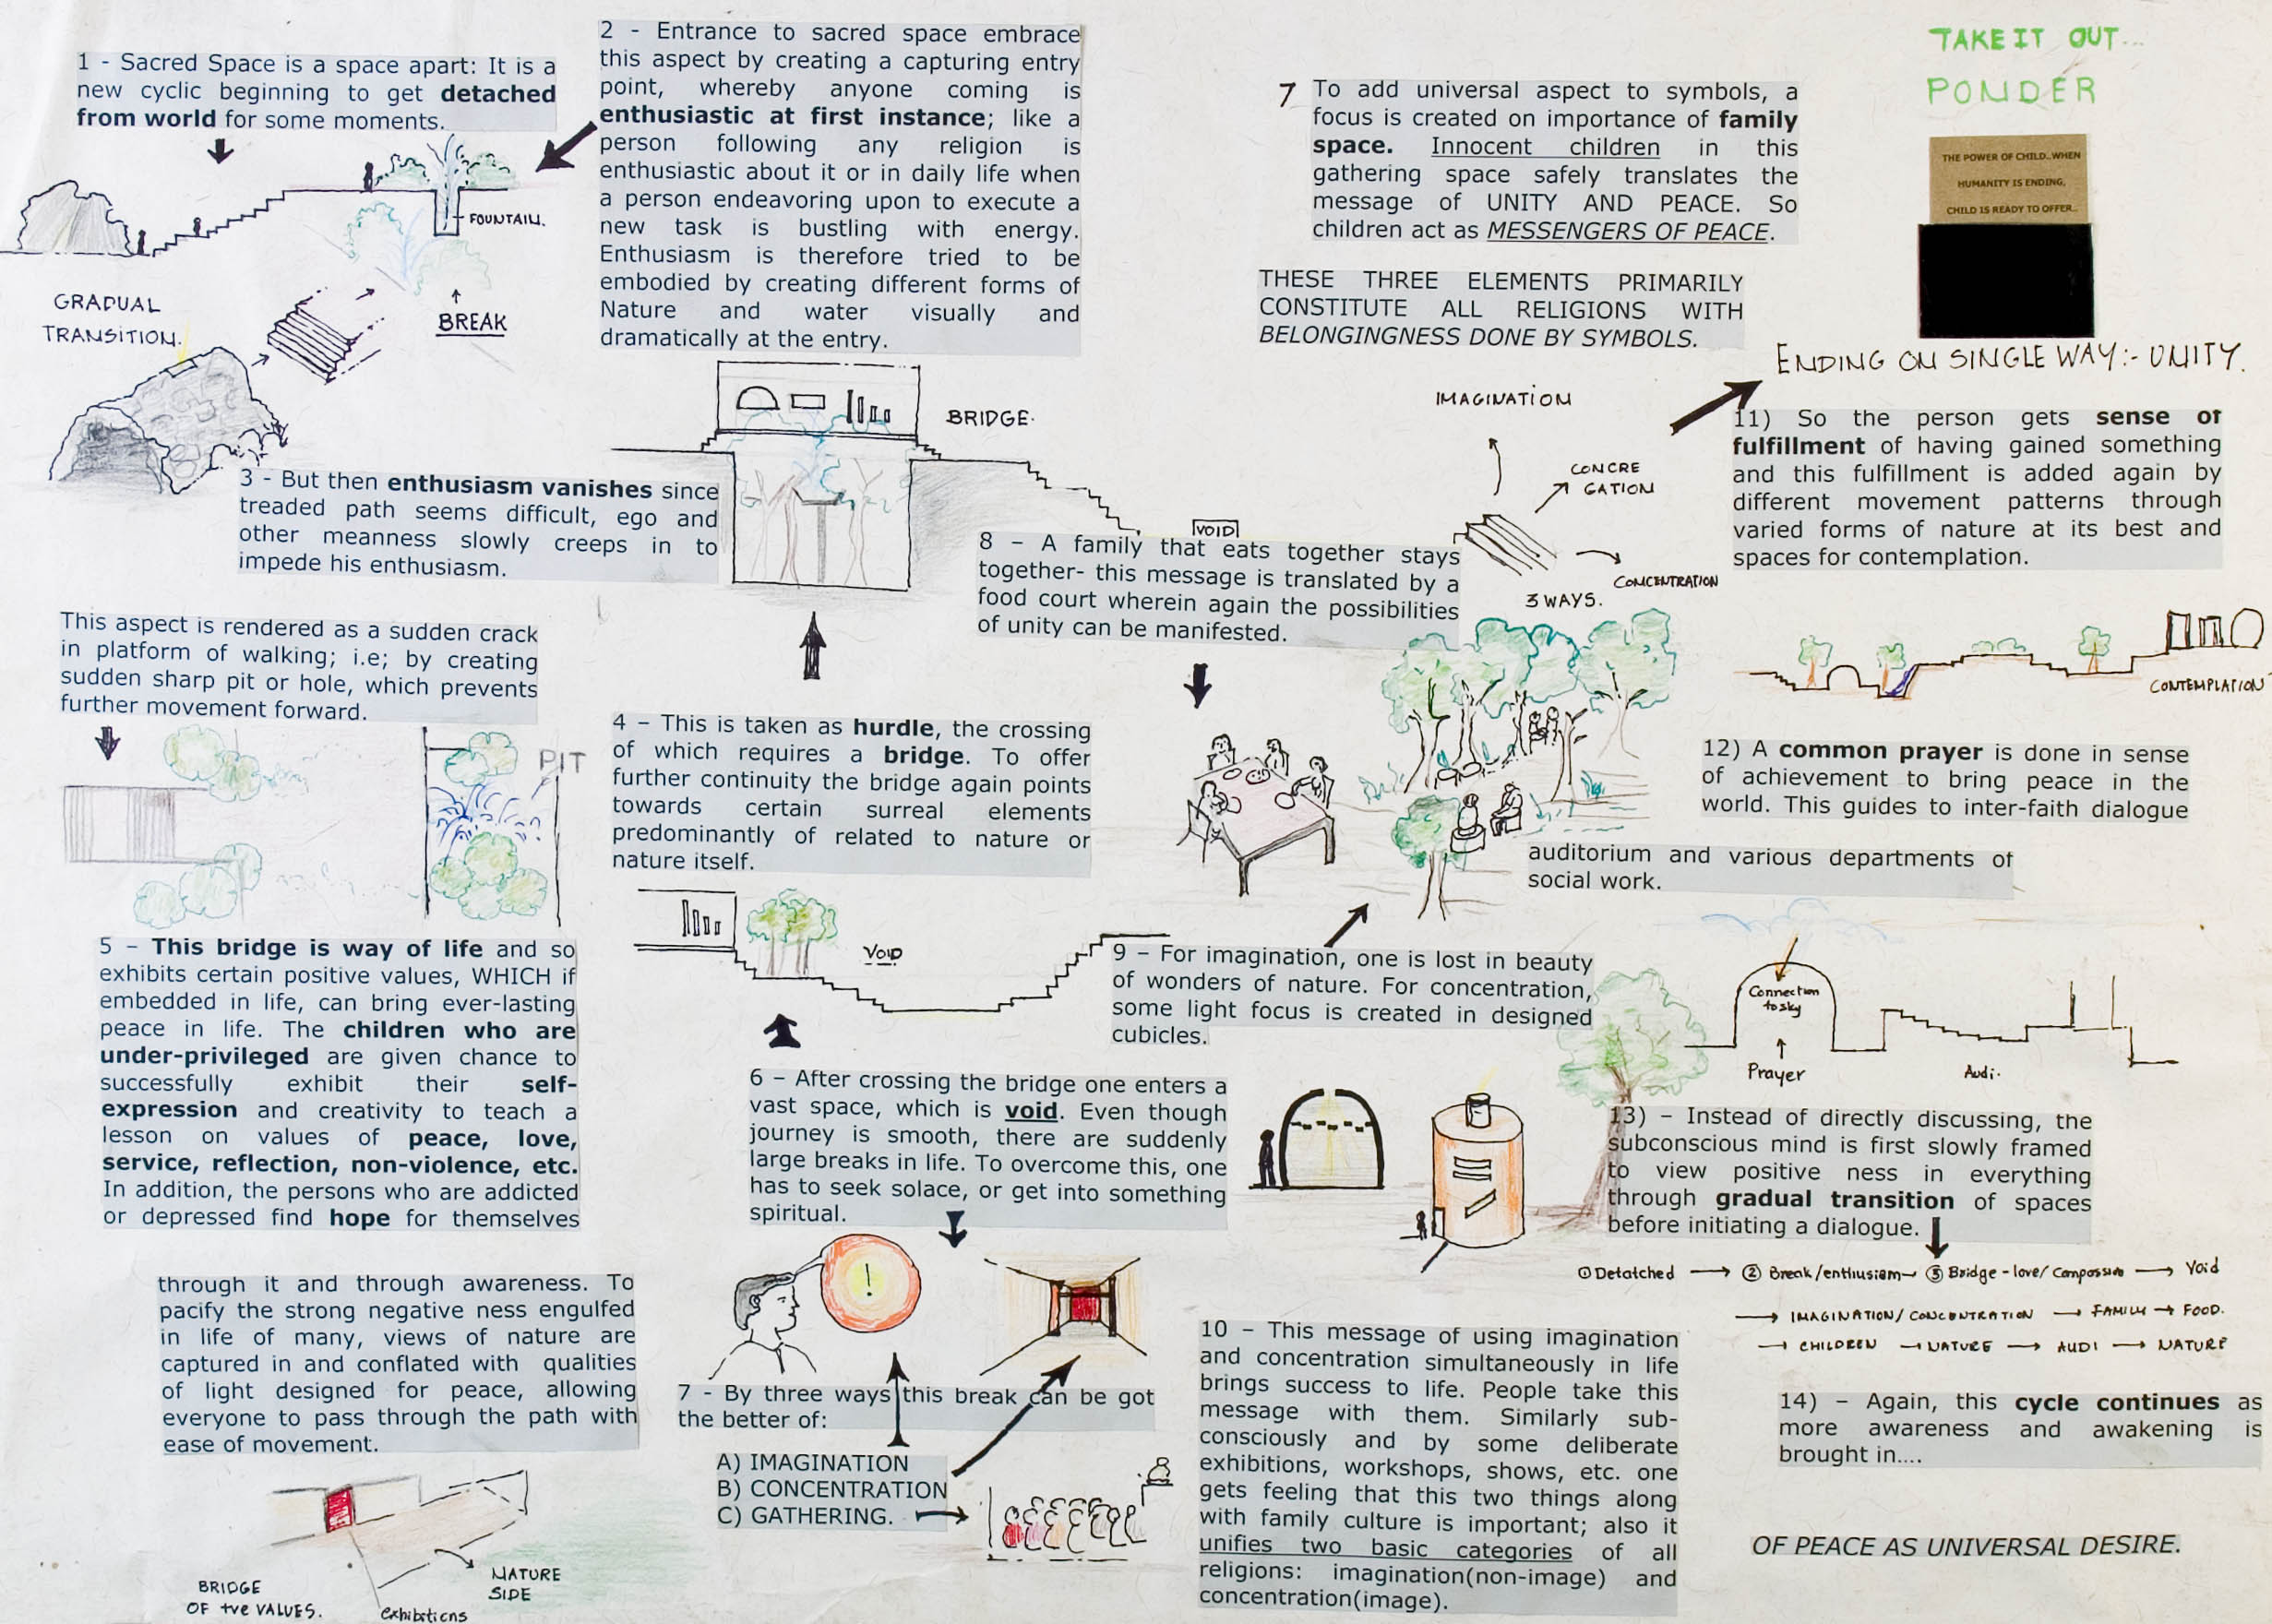 1 - Sacred Space is a space apart: It is a
new cyclic beginning to get detached
from world for some moments.
FOUNTAIN.
GRADUAL
TRANSITION.
BREAK
2 - Entrance to sacred space embrace
this aspect by creating a capturing entry
point, whereby anyone coming is
enthusiastic at first instance; like a
person following any religion is
enthusiastic about it or in daily life when
a person endeavoring upon to execute a
new task is bustling with energy.
Enthusiasm is therefore tried to be
embodied by creating different forms of
Nature and water visually and
dramatically at the entry.
BRIDGE.
3 - But then enthusiasm vanishes since
treaded path seems difficult, ego and
other meanness slowly creeps in to
impede his enthusiasm.
This aspect is rendered as a sudden crack
in platform of walking; i.e; by creating
sudden sharp pit or hole, which prevents
further movement forward.
PIT
4 – This is taken as hurdle, the crossing
of which requires a bridge. To offer
further continuity the bridge again points
towards certain surreal elements
predominantly of related to nature or
nature itself.
VOID
5 – This bridge is way of life and so
exhibits certain positive values, WHICH if
embedded in life, can bring ever-lasting
peace in life. The children who are
under-privileged are given chance to
successfully exhibit their self-
expression and creativity to teach a
lesson on values of peace, love,
service, reflection, non-violence, etc.
In addition, the persons who are addicted
or depressed find hope for themselves
through it and through awareness. To
pacify the strong negative ness engulfed
in life of many, views of nature are
captured in and conflated with qualities
of light designed for peace, allowing
everyone to pass through the path with
ease of movement.
BRIDGE
OF +ve VALUES.
exhibitions
NATURE
SIDE
6 – After crossing the bridge one enters a
vast space, which is void. Even though
journey is smooth, there are suddenly
large breaks in life. To overcome this, one
has to seek solace, or get into something
spiritual.
!
7 - By three ways this break can be got
the better of:
A) IMAGINATION
B) CONCENTRATION
C) GATHERING.
7 To add universal aspect to symbols, a
focus is created on importance of family
space. Innocent children in this
gathering space safely translates the
message of UNITY AND PEACE. So
children act as MESSENGERS OF PEACE.
THESE THREE ELEMENTS PRIMARILY
CONSTITUTE ALL RELIGIONS WITH
BELONGINGNESS DONE BY SYMBOLS.
IMAGINATION
CONCRE
GATION
CONCENTRATION
3 WAYS.
VOID
8 – A family that eats together stays
together- this message is translated by a
food court wherein again the possibilities
of unity can be manifested.
9 – For imagination, one is lost in beauty
of wonders of nature. For concentration,
some light focus is created in designed
cubicles.
10 – This message of using imagination
and concentration simultaneously in life
brings success to life. People take this
message with them. Similarly sub-
consciously and by some deliberate
exhibitions, workshops, shows, etc. one
gets feeling that this two things along
with family culture is important; also it
unifies two basic categories of all
religions: imagination(non-image) and
concentration(image).
TAKE IT OUT...
PONDER
THE POWER OF CHILD..WHEN
HUMANITY IS ENDING,
CHILD IS READY TO OFFER..
ENDING ON SINGLE WAY:- UNITY.
11) So the person gets sense of
fulfillment of having gained something
and this fulfillment is added again by
different movement patterns through
varied forms of nature at its best and
spaces for contemplation.
CONTEMPLATION
12) A common prayer is done in sense
of achievement to bring peace in the
world. This guides to inter-faith dialogue
auditorium and various departments of
social work.
Connection
to sky
Prayer
Audi.
13) – Instead of directly discussing, the
subconscious mind is first slowly framed
to view positive ness in everything
through gradual transition of spaces
before initiating a dialogue.
① Detatched → ② Break/enthusiasm → ③ Bridge - love/Compassion → Void
→ IMAGINATION/CONCENTRATION → FAMILY → FOOD.
→ CHILDREN → NATURE → AUDI → NATURE
14) – Again, this cycle continues as
more awareness and awakening is
brought in....
OF PEACE AS UNIVERSAL DESIRE.